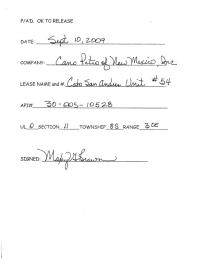 P/A'D. OK TO RELEASE
DATE: Sept 10, 2009
COMPANY: Cano Petro of New Mexico, Inc
LEASE NAME and #. Cato San Andres Unit #54
API# 30-005-10528
UL O SECTION 11 TOWNSHIP 8S RANGE 30E
SIGNED: